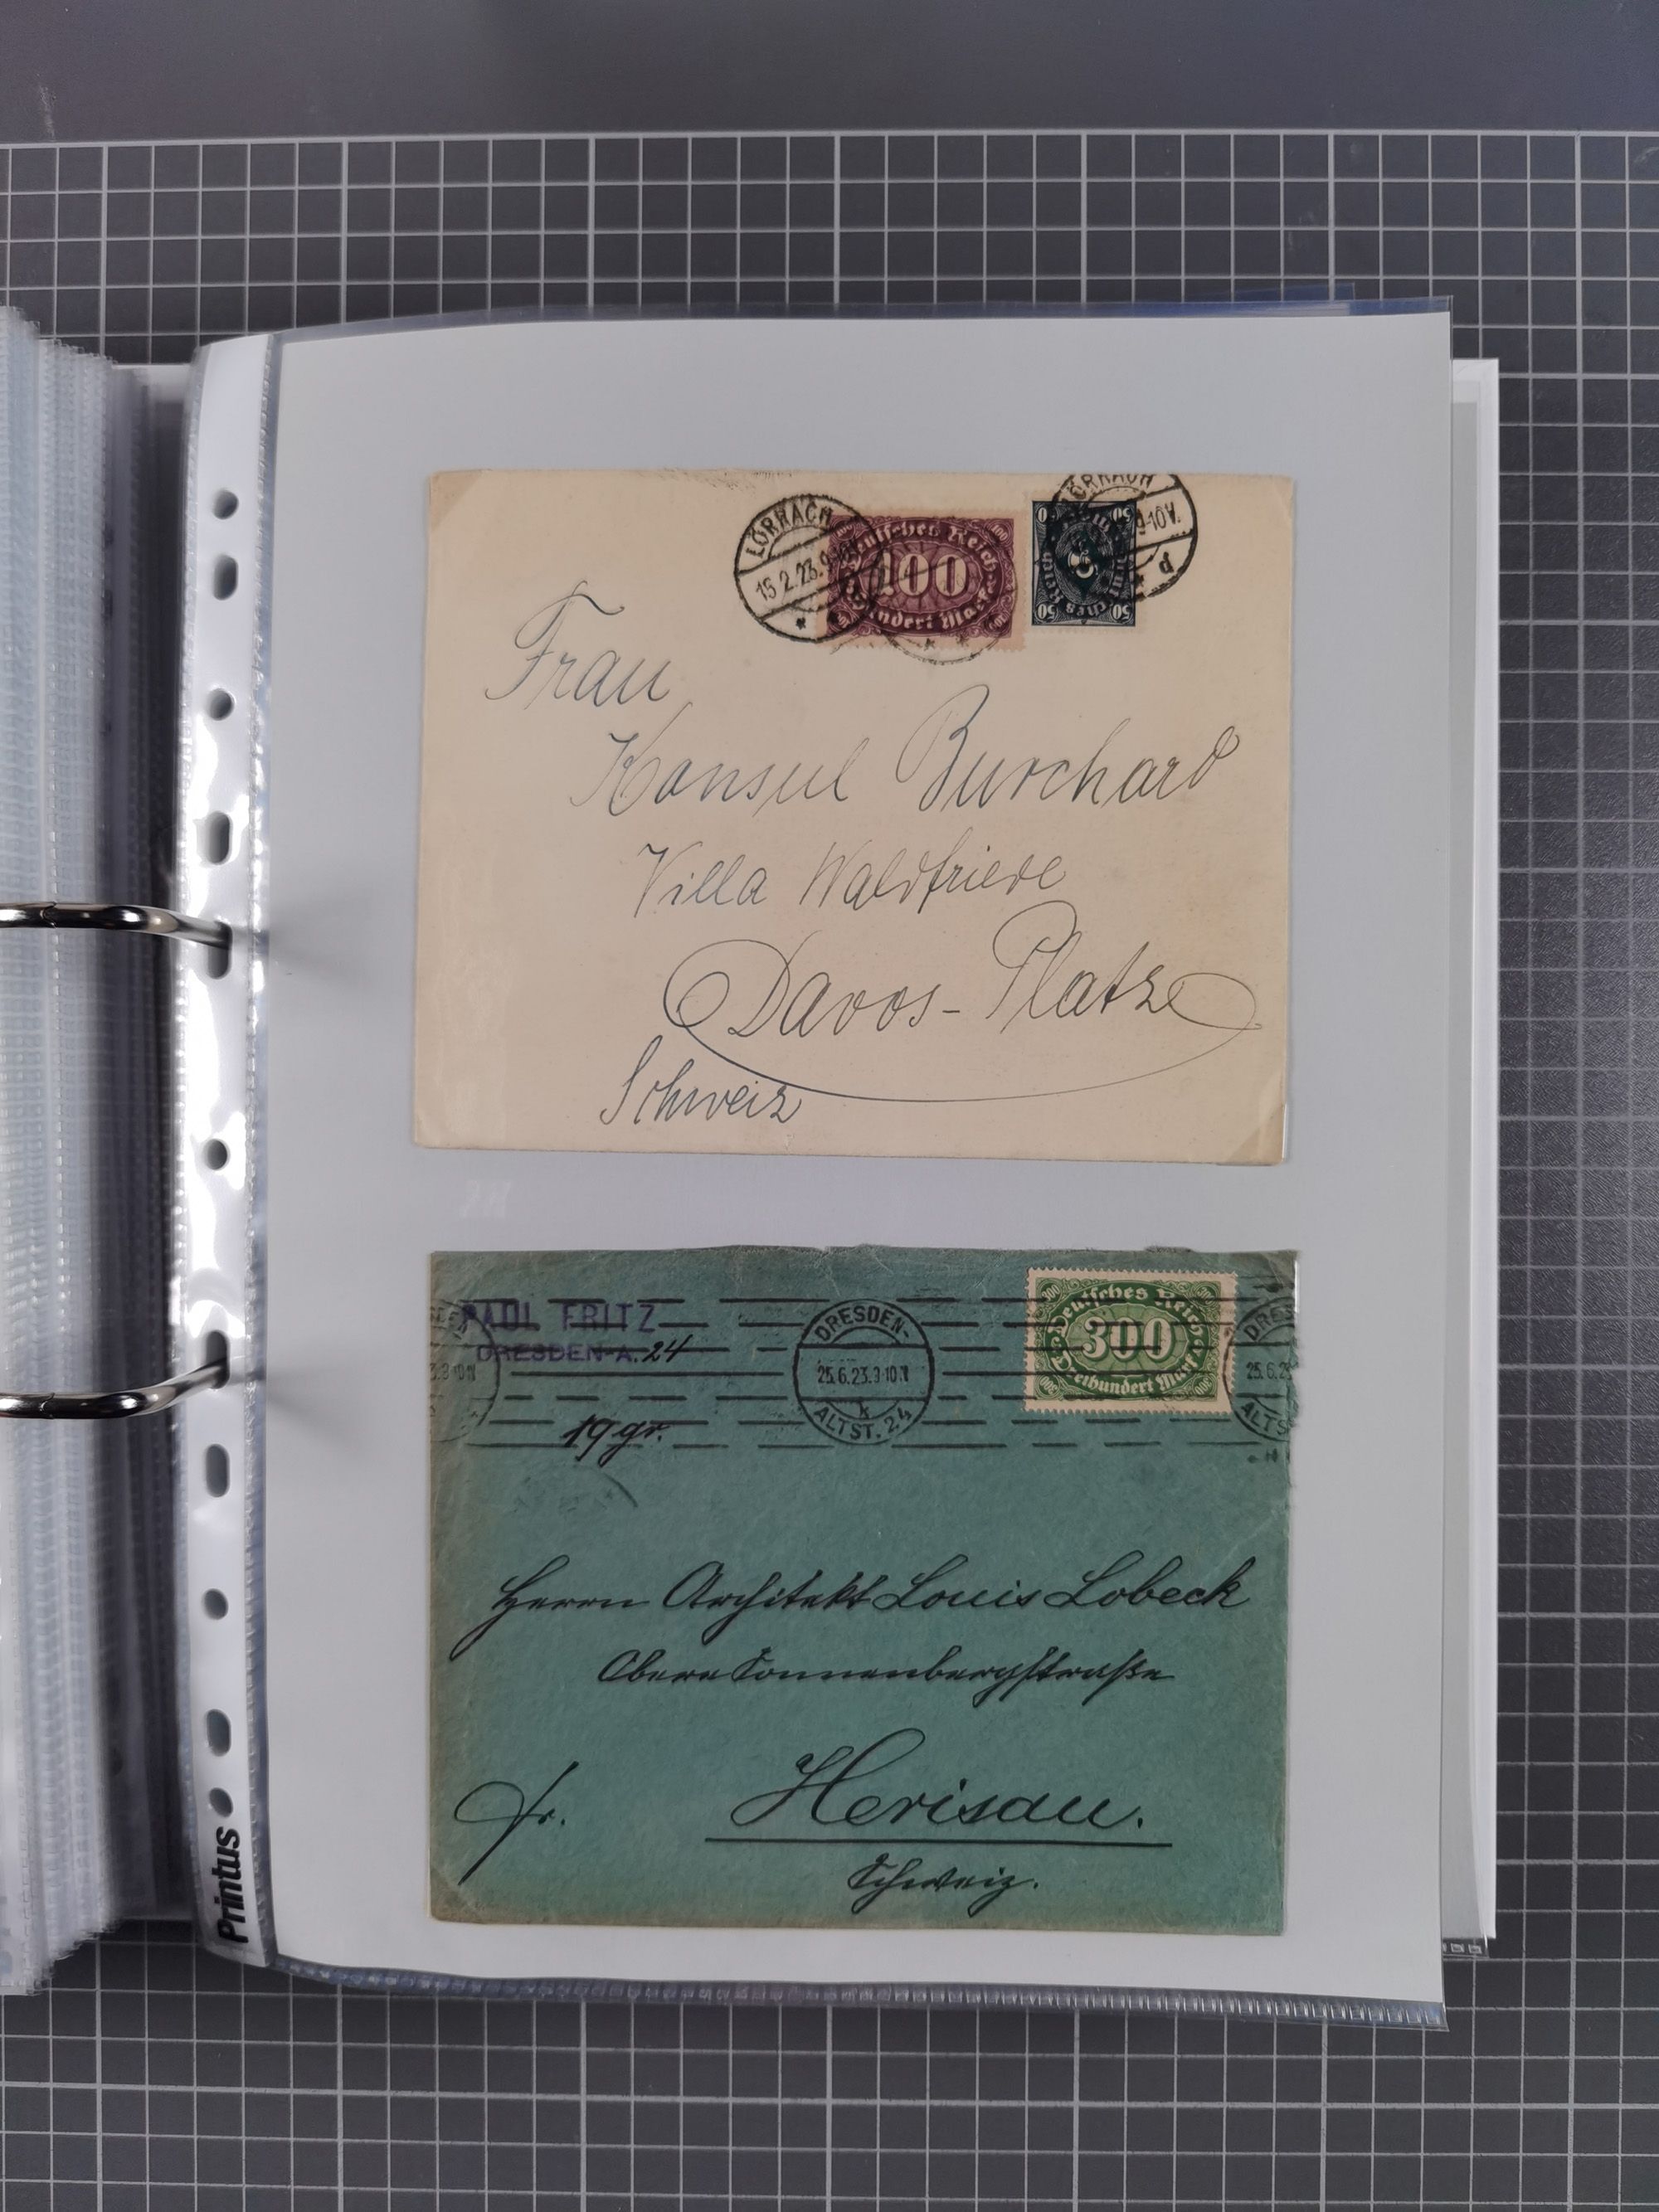 LÖRRACH
15.2.23.9-10V.
* *
Deutsches Reich
100
Hundert Mark
50
LÖRRACH
9-10V.
* d
Frau
Konsul Burchard
Villa Waldfriede
Davos-Platz
Schweiz
PAUL FRITZ
DRESDEN-A. 24
19 gr.
DRESDEN-
25.6.23.9-10V
k
ALTST. 24
Deutsches Reich
300
Dreihundert Mark
DRES
25.6.23
ALTS
Herrn Architekt Louis Lobeck
Obere Sonnenbergstraße
fr. Herisau.
Schweiz.
Printus